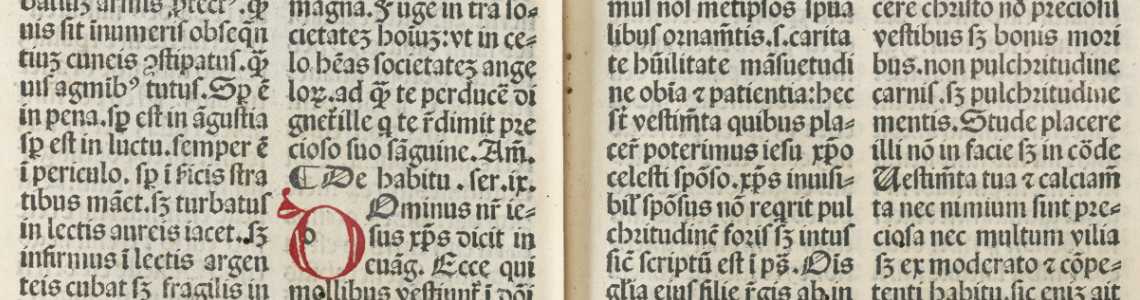 uis sit inumeris obseqn̄
tiuʒ cuneis ꝯstipatus.qͣ̄
uis agmibꝰ tutus. Sꝑ ē
in pena.sꝑ est in āgustia
sꝑ est in luctu.semper ē
ī periculo. sꝑ ī ficis stra
tibus māet.sʒ turbatus
in lectis aureis iacet.sʒ
infirmus ī lectis argen
teis cubat sʒ fragilis in
magna.Fuge in tra so-
cietateʒ hoīuʒ:vt in ce⸗
lo hēas societateʒ ange
loꝝ.ad qͣ̄ te perducē di
gnet̄ ille q te r̄dimit pre
cioso suo sāguine. Am̄.
¶ De habitu . ser.ix.
Dominus nr̄ ie⸗
sus xp̄s dicit in
euāg. Ecce qui
mollibus vestiunt̄ ī dōi
mus nos metipsos spūa
libus ornam̄tis.s.carita
te hūilitate māsuetudi
ne obīa ⁊ patientia:hec
st̄ vestim̄ta quibus pla⸗
cer̄ poterimus iesu xp̄o
celesti spōso.xp̄s inuisi⸗
bil̄ spōsus nō reqrit pul
chritudinē foris sʒ intus
sic̄ scriptū est ī ps̄. Ois
gl̄ia eius filie r̄gis ab in
cere christo nō preciosis
vestibus sʒ bonis mori
bus.non pulchritudine
carnis.sʒ pulchritudine
mentis.Stude placere
illi nō in facie sʒ in cōde
Uestim̄ta tua ⁊ calciam̄
ta nec nimium sint pre⸗
ciosa nec multum vilia
sʒ ex moderato ⁊ cōpe⸗
tenti habitu. sic eniʒ ait